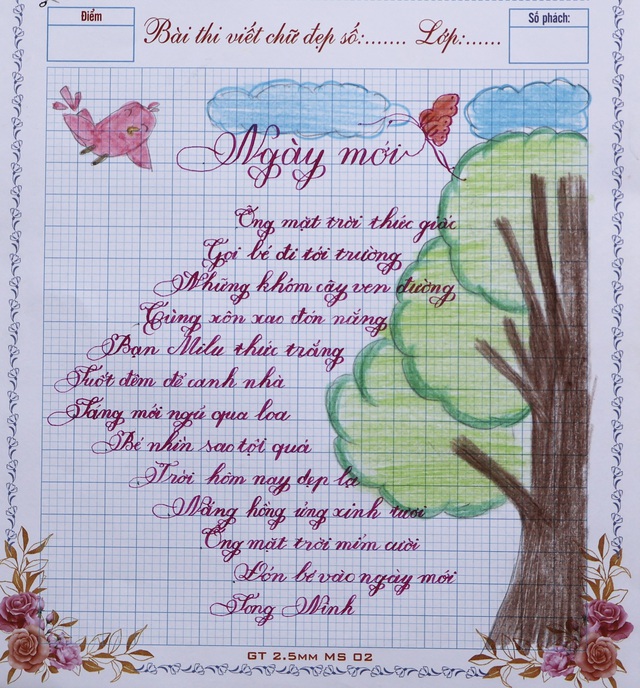 Điểm
Bài thi viết chữ đẹp số:....... Lớp:......
Số phách:
Ngày mới
Ông mặt trời thức giấc
Gọi bé đi tới trường
Những khóm cây ven đường
Cùng xôn xao đón nắng
Bạn Milu thức trắng
Suốt đêm để canh nhà
Sáng mới ngủ qua loa
Bé nhìn sao tội quá
Trời hôm nay đẹp lạ
Nắng hồng ửng xinh tươi
Ông mặt trời mỉm cười
Đón bé vào ngày mới
Tong Ninh
GT 2.5MM MS 02